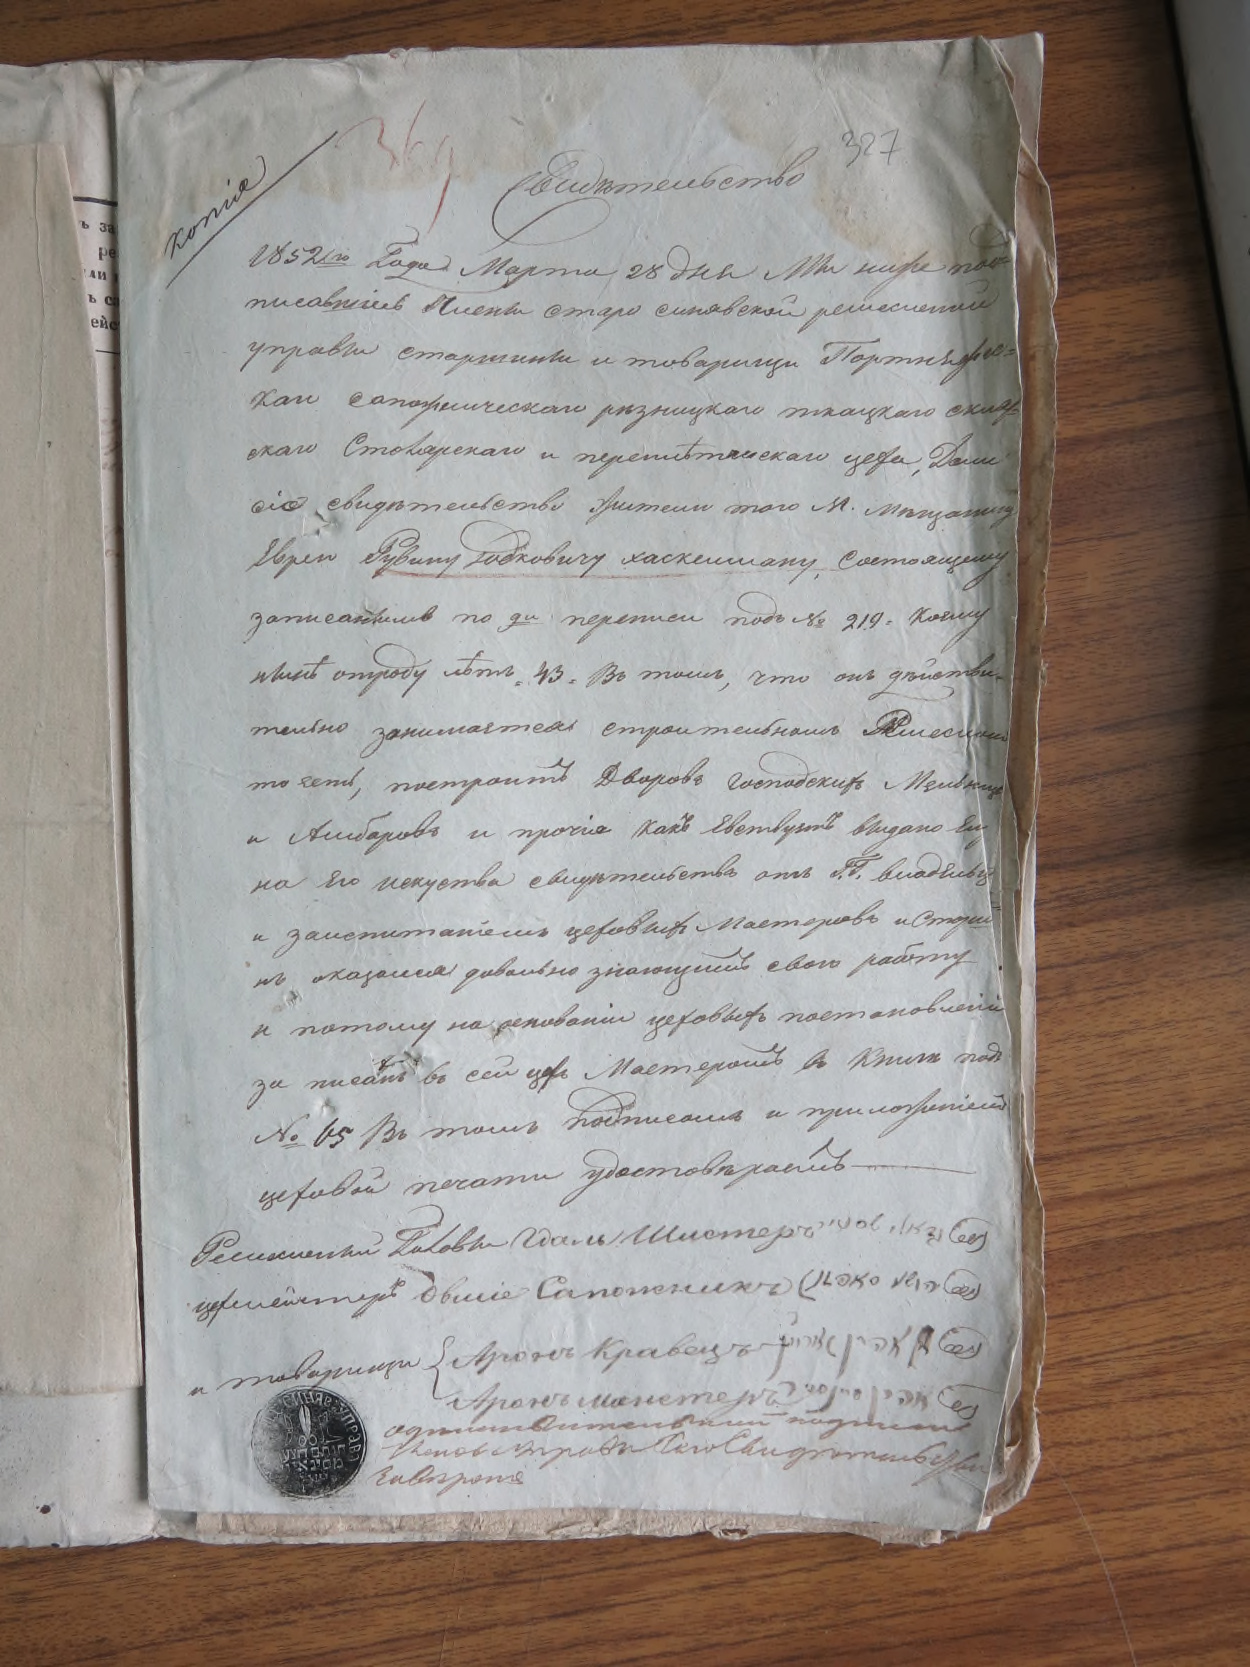 копія
369
327
Свидѣтельство
1852го Года Марта 28 дня Мы ниже под=
писавшіесь Члены старо синявской ремесленой
управы старшины и товарищи Портняжес=
каго сапожническаго рѣзницкаго ткацкаго скляр=
скаго Столярскаго и переплѣтнискаго цеха, Дали
сіе свидѣтельство жителю того М. Мѣщанину
Еврею Рувину Гобковичу хаскельману, Состоящему
записанымъ по 9й переписи подъ № 219. Коему
нынѣ отроду лѣтъ 43. Въ томъ, что онъ дѣйстви-
тельно занимается строительнымъ Ремесломъ
то есть, построитъ Дворовъ господскихъ Мельницъ
и Амбаровъ и прочіе какъ Евствуетъ выдано Ему
на Его искуства свидѣтельства отъ Г.Г. владѣльц=
и заиспитаніемъ цеховыхъ Мастеровъ и Стари=
нъ оказался довольно знающимъ свою работу
и потому на основаніи цеховыхъ постановленій
за писанъ въ сей цехъ Мастеромъ в Книги подъ
№ 65 Въ томъ подписомъ и приложеніемъ
цеховой печати удостовѣряемъ
Ремесленый Голова Гдаль Шистеръ
цехмейстеръ Овшіе Сапожникъ
и товарищи { Аронъ Кравецъ
Аронъ майстеръ
подписи
Членовъ управы Сего Свидѣтельства